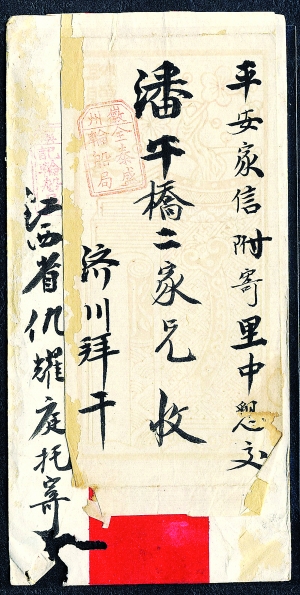 平安家信附寄里中懇交
潘平橋二家兄收
濟川拜干
江西省仉耀庭托寄
嚴全泰盛
州輪船局